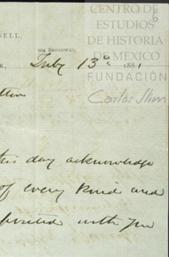 CENTRO DE
ESTUDIOS
DE HISTORIA
DE MEXICO
FUNDACIÓN
Carlos Slim
SELL,
BROADWAY,
July 13
this day acknowledge
of every kind and
with you